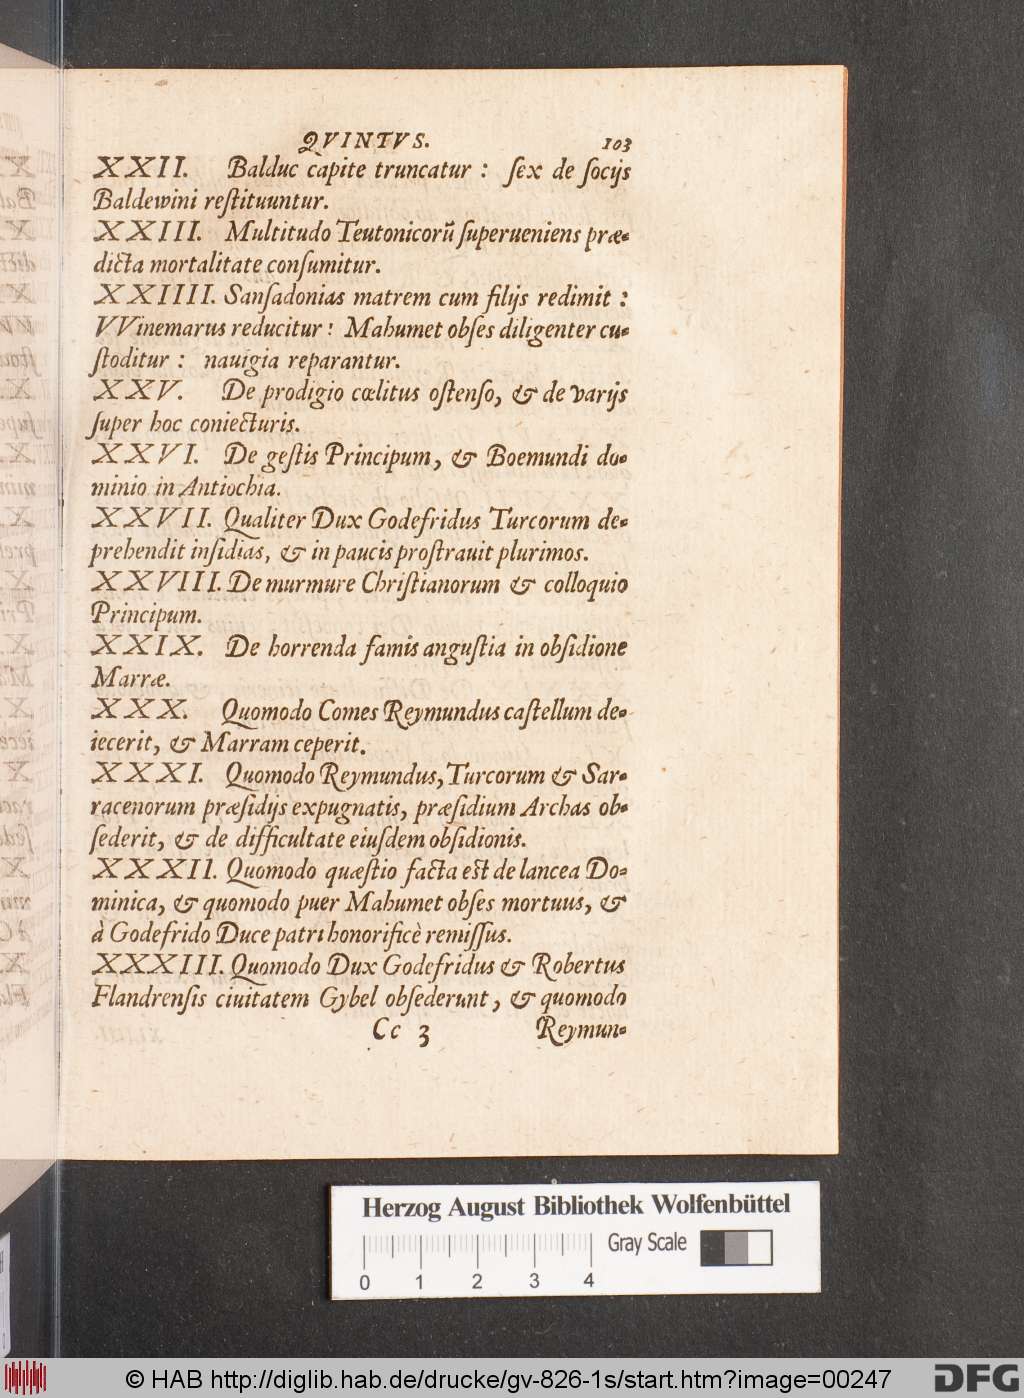 QVINTVS. 103
XXII. Balduc capite truncatur : ſex de ſocijs
Baldewini reſtituuntur.
XXIII. Multitudo Teutonicorũ ſuperueniens præ-
dicta mortalitate conſumitur.
XXIIII. Sanſadonias matrem cum filijs redimit :
VVinemarus reducitur : Mahumet obſes diligenter cu-
ſtoditur : nauigia reparantur.
XXV. De prodigio cœlitus oſtenſo, & de varijs
ſuper hoc coniecturis.
XXVI. De geſtis Principum, & Boemundi do-
minio in Antiochia.
XXVII. Qualiter Dux Godefridus Turcorum de-
prehendit inſidias, & in paucis proſtrauit plurimos.
XXVIII. De murmure Chriſtianorum & colloquio
Principum.
XXIX. De horrenda famis anguſtia in obſidione
Marræ.
XXX. Quomodo Comes Reymundus caſtellum de-
iecerit, & Marram ceperit.
XXXI. Quomodo Reymundus, Turcorum & Sar-
racenorum præſidijs expugnatis, præſidium Archas ob-
ſederit, & de difficultate eiuſdem obſidionis.
XXXII. Quomodo quæſtio facta eſt de lancea Do-
minica, & quomodo puer Mahumet obſes mortuus, &
à Godefrido Duce patri honorificè remiſſus.
XXXIII. Quomodo Dux Godefridus & Robertus
Flandrenſis ciuitatem Gybel obſederunt, & quomodo
Cc 3 Reymun-
Herzog August Bibliothek Wolfenbüttel
Gray Scale
0 1 2 3 4
© HAB http://diglib.hab.de/drucke/gv-826-1s/start.htm?image=00247
DFG